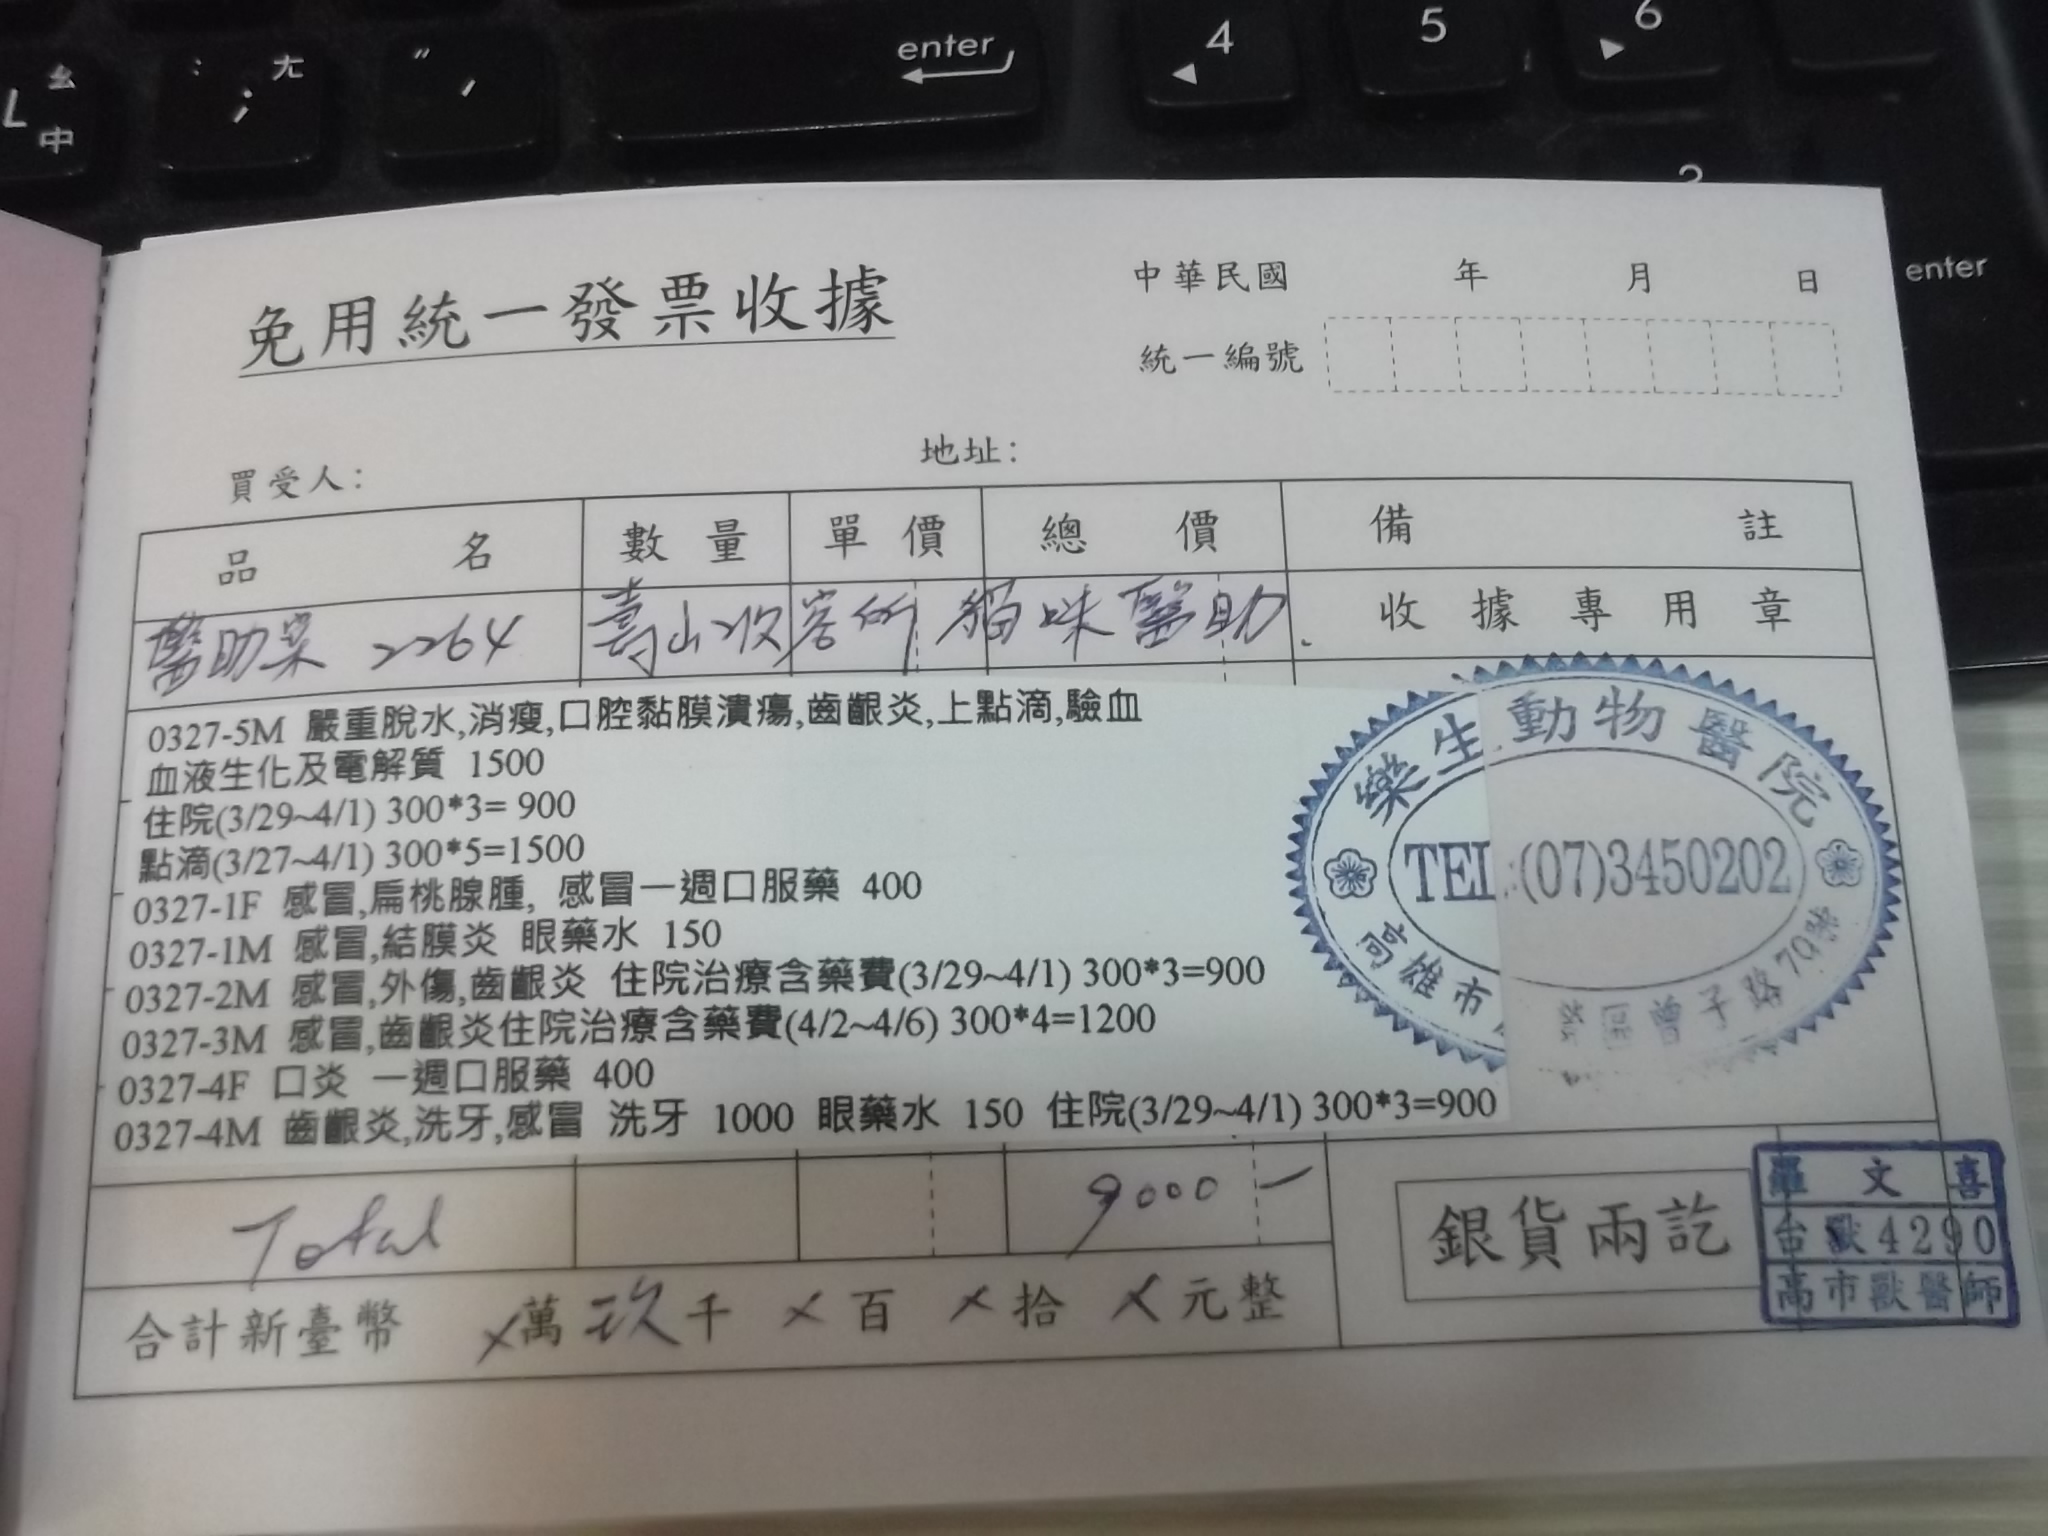 L ㄠ 中
: ; ㄤ
" ,
enter
4
5
6
enter
免用統一發票收據
中華民國 年 月 日
統一編號
買受人:
地址:
品 名 數 量 單 價 總 價 備 註
醫助案 2264 壽山收容所 貓咪醫助.
收據專用章
0327-5M 嚴重脫水,消瘦,口腔黏膜潰瘍,齒齦炎,上點滴,驗血
血液生化及電解質 1500
住院(3/29~4/1) 300*3= 900
點滴(3/27~4/1) 300*5=1500
0327-1F 感冒,扁桃腺腫, 感冒一週口服藥 400
0327-1M 感冒,結膜炎 眼藥水 150
0327-2M 感冒,外傷,齒齦炎 住院治療含藥費(3/29~4/1) 300*3=900
0327-3M 感冒,齒齦炎住院治療含藥費(4/2~4/6) 300*4=1200
0327-4F 口炎 一週口服藥 400
0327-4M 齒齦炎,洗牙,感冒 洗牙 1000 眼藥水 150 住院(3/29~4/1) 300*3=900
樂生動物醫院
TEL:(07)3450202
高雄市 區曾子路79號
Total 9000 —
合計新臺幣 ×萬玖千×百×拾×元整
銀貨兩訖
羅文喜
台獸4290
高市獸醫師